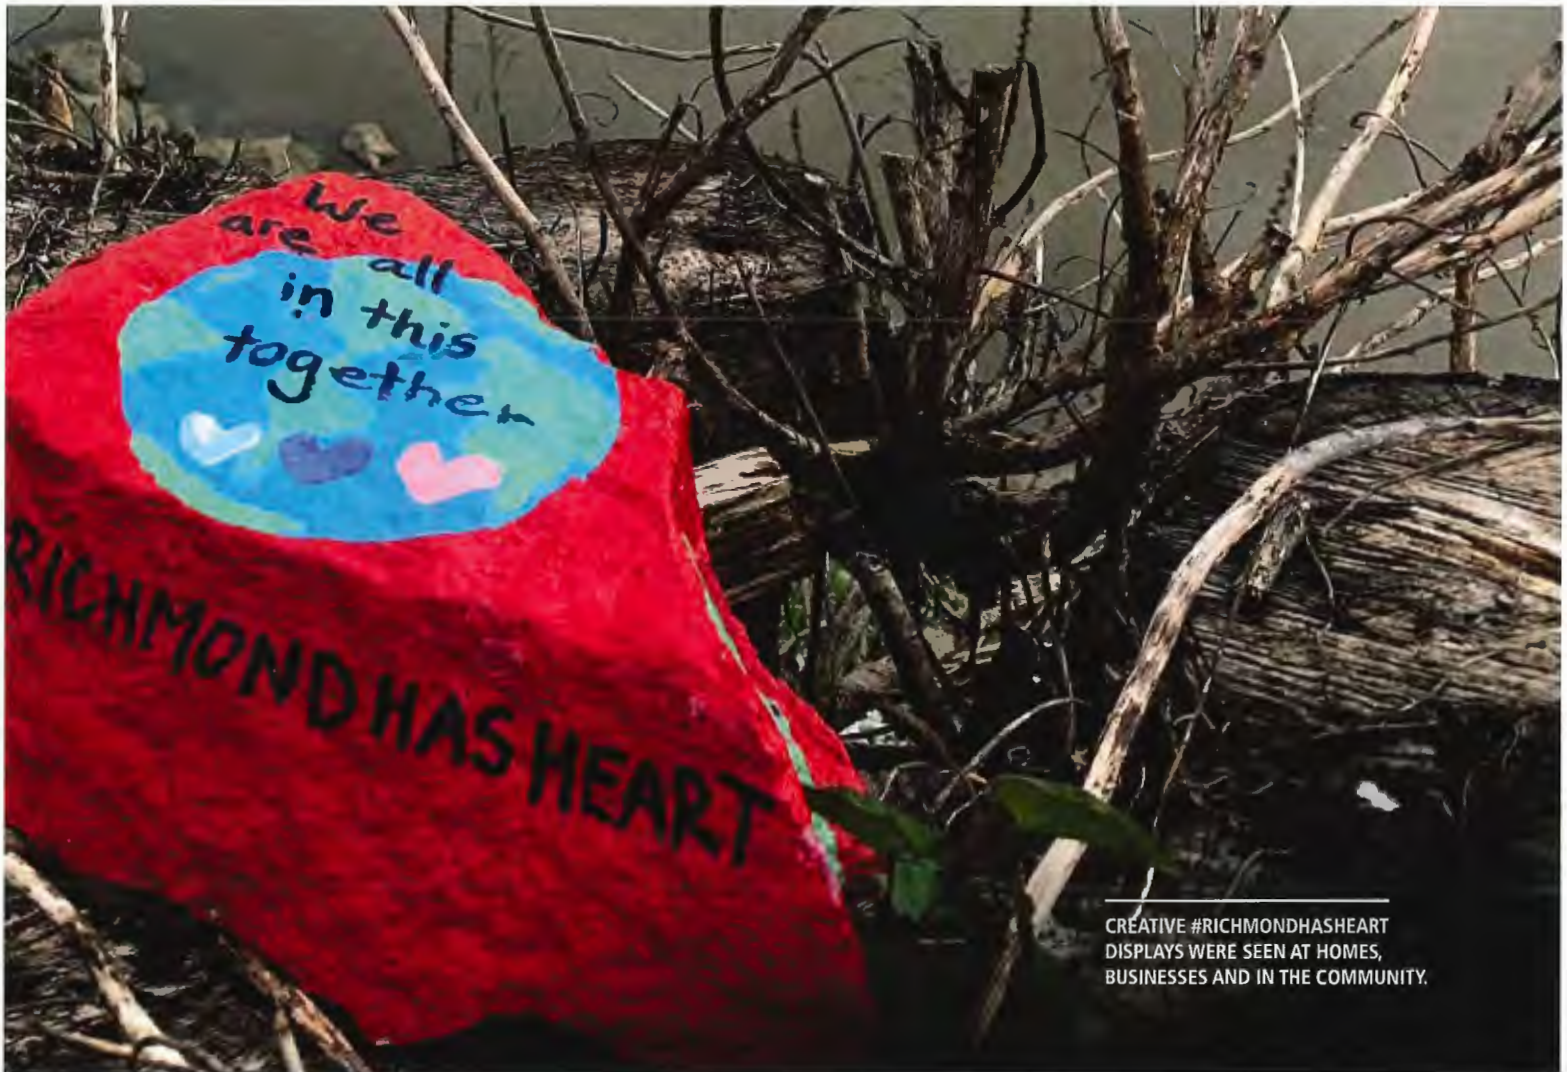 We
are all
in this
together
RICHMOND HAS HEART
CREATIVE #RICHMONDHASHEART
DISPLAYS WERE SEEN AT HOMES,
BUSINESSES AND IN THE COMMUNITY.